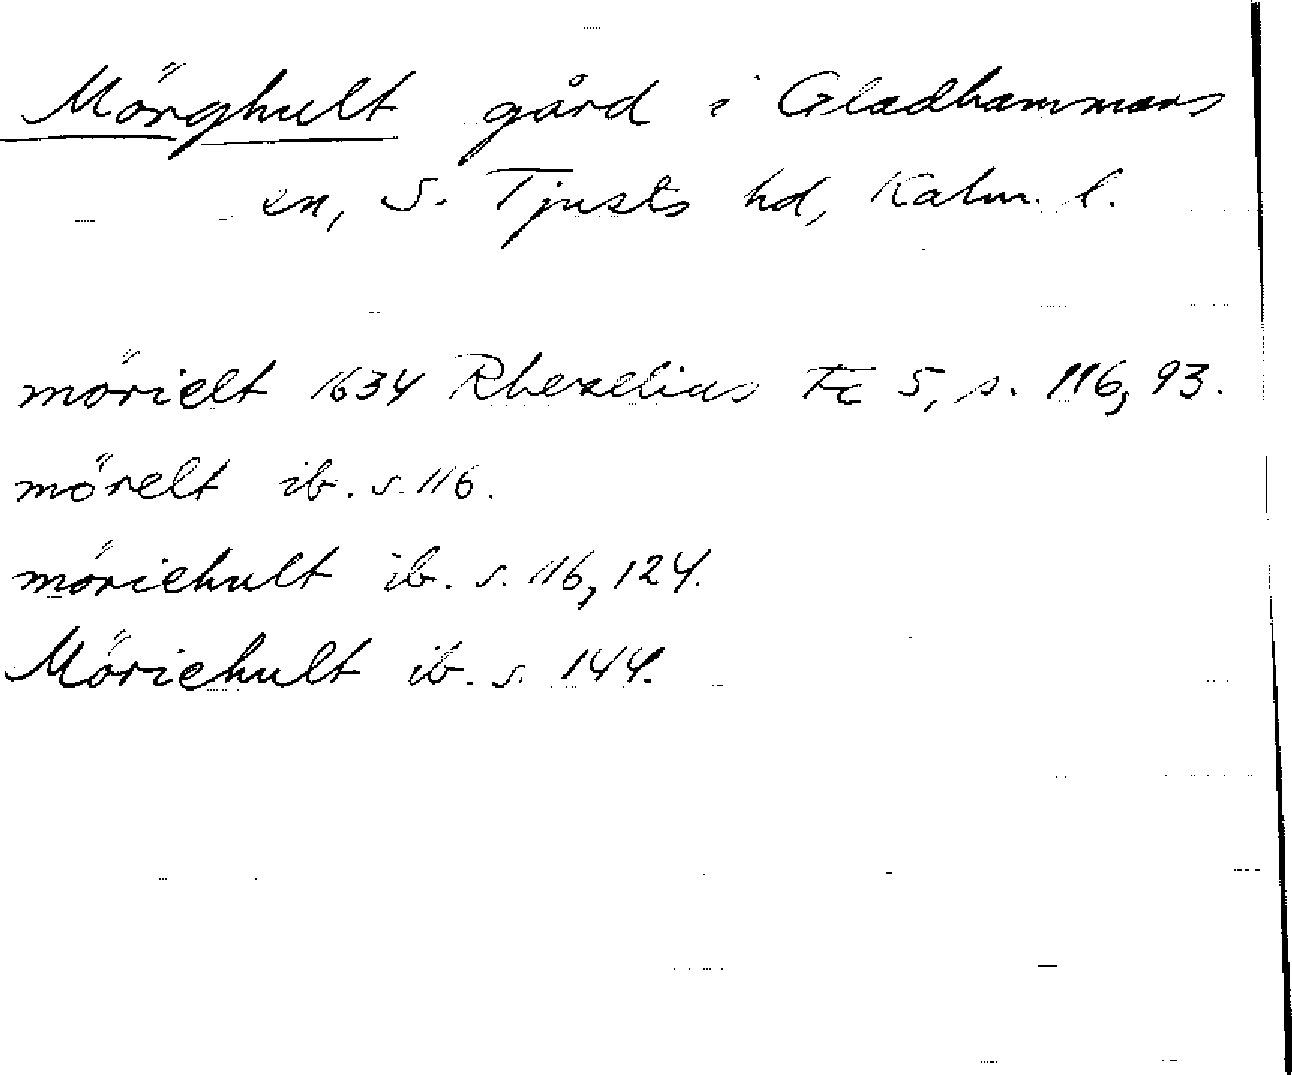 Mörghult gård i Gladhammars
sn, S. Tjusts hd, Kalm. l.
mörielt 1634 Rhezelius Fc 5, s. 116, 93.
mörelt ib. s. 116.
möriehult ib. s. 116, 124.
Möriehult ib. s. 144.